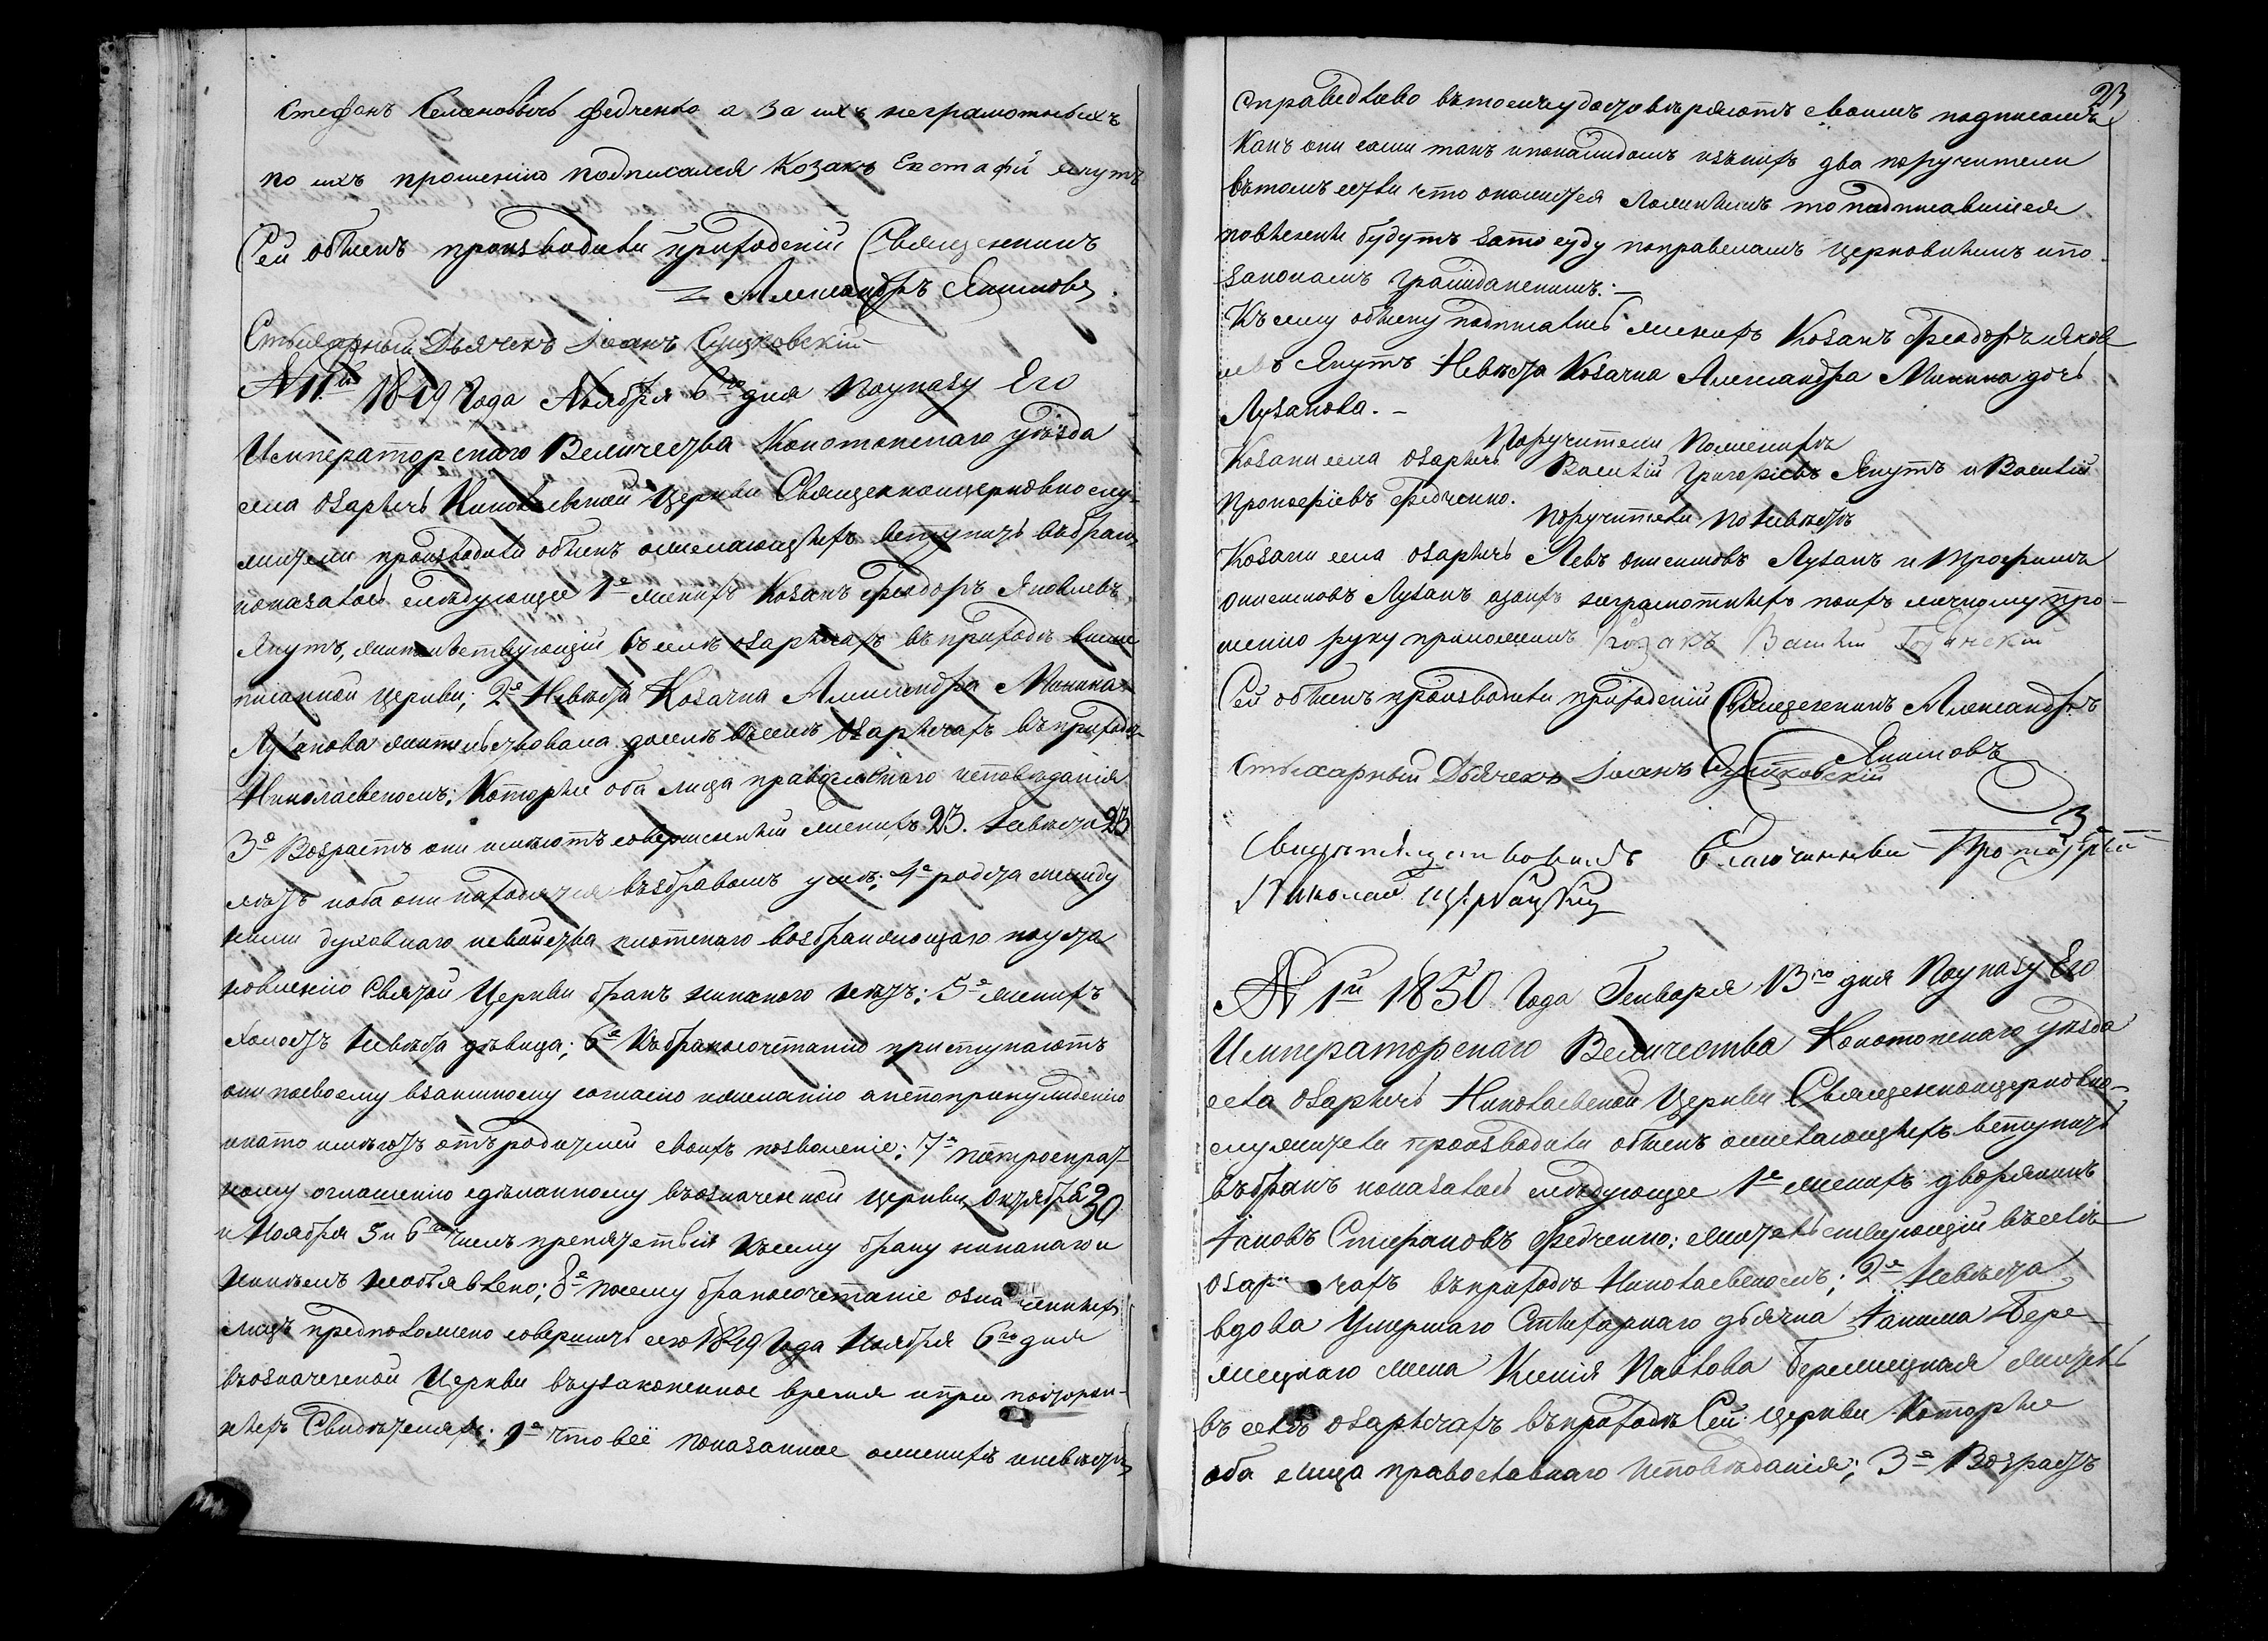 Стефанъ Семеновичъ Федченко а за ихъ неграмотныхъ
по ихъ прошенію подписался Козакъ Евстафій Якутъ
Сей обыскъ производили приходскій Священникъ
Александръ Якимовъ
Стихарный Дьячекъ Іоанъ Сушковскій
N 11й 1849 Года Ноября 6го дня По указу Его
Императорскаго Величества Конотопскаго уѣзда
села Озаричъ Николаевской Церкви Священноцерковнослу-
жители производили обыскъ о желающихъ вступить въ бракъ,
и оказалось слѣдующее 1е женихъ Козакъ Феодоръ Яковлевъ
Якутъ, жительствующій въ селѣ Озаричахъ въ приходѣ выше
писанной церкви; 2е Невѣста Козачка Александра Минина
Лузанова жительствовала до селѣ въ селѣ Озаричахъ въ приходѣ
Николаевскомъ; Которые оба лица православнаго исповѣданія
3е Возрастъ они имѣютъ совершенный женихъ 23. Невѣста 23
лѣтъ и оба они находятся въ здравомъ умѣ; 4е родства между
ними духовнаго и свойства плотскаго возбраняющаго по уста
новленію Святой Церкви бракъ никакого нѣтъ; 5е женихъ
холостъ невѣста дѣвица; 6е Къ бракосочетанію приступаютъ
они по своему взаимному согласію и желанію а не по принужденію
и на то имѣютъ отъ родителей своихъ позволеніе; 7е По троекрат-
ному оглашенію сдѣланному въ означенной церкви, Октября 30
и Ноября 5 и 6го чиселъ препятствія къ сему браку никакаго и
никѣмъ необъявлено; 8е Посему бракосочетаніе означенныхъ
лицъ предположено совершить сего 1849 Года Ноября 6го дня
въ означенной Церкви въ узаконенное время и при посторон-
ныхъ Свидѣтеляхъ; 9е Что всё показанное о женихѣ и невѣстѣ
23
справедливо въ томъ и удостовѣряютъ своимъ подписомъ
какъ они сами такъ и по каждомъ изъ нихъ два поручители
въ томъ если что окажется ложнымъ то подписавшіеся
повинны будутъ за то суду по правиламъ церковнымъ и по
законамъ гражданскимъ:—
Къ сему обыску подписались женихъ Козакъ Феодоръ Яков
левъ Якутъ Невѣста Козачка Александра Минина дочь
Лузанова. —
Поручители По женихѣ
Козаки села Озаричъ Василій Григорієвъ Якутъ и Василій
Прокофієвъ Федченко.
Поручители По невѣстѣ
Козаки села Озаричъ Левъ Онисимовъ Лузанъ и Трофимъ
Онисимовъ Лузанъ а за ихъ неграмотныхъ по ихъ личному про-
шенію руку приложилъ Козакъ Василій
Сей обыскъ производили приходскій Священникъ Александръ
Якимовъ
Стихарный Дьячекъ Іоанъ Сушковскій
Свидѣтельствовалъ Благочинный Протоіерей
Николай
N 1й 1850 Года Генваря 13го дня По указу Его
Императорскаго Величества Конотопскаго уѣзда
села Озаричъ Николаевской Церкви Священноцерковно-
служители производили обыскъ о желающихъ вступить
въ бракъ и оказалось слѣдующее 1е женихъ дворянинъ
Іаковъ Стефановъ Федченко; жительствующій въ селѣ
Озаричахъ въ приходѣ Николаевскомъ; 2е Невѣста
вдова Умершаго Стихарнаго дьячка Іакима Бере-
жецкаго жена Ксенія Павлова Бережецкая житель
въ селѣ Озаричахъ въ приходѣ Сей церкви Которые
оба лица православнаго Исповѣданія; 3е Возрастъ